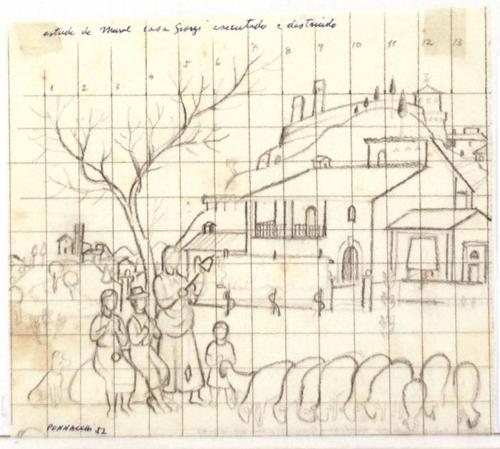 estudo do Mural casa Giorgi executado e destruido
1 2 3 4 5 6 7 8 9 10 11 12 13
PENNACCHI 52